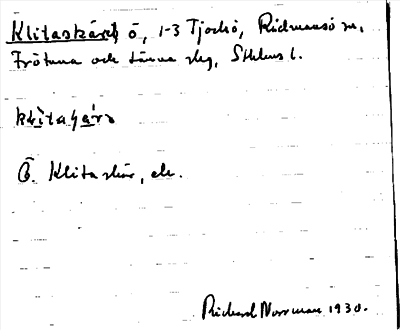 Klitaskäret ö, 1-3 Tjockö, Rådmansö sn,
Frötuna och Länna slg, Sthlms l.
Ö. Klitaskär, ek.
Rickard Norrman 1930.